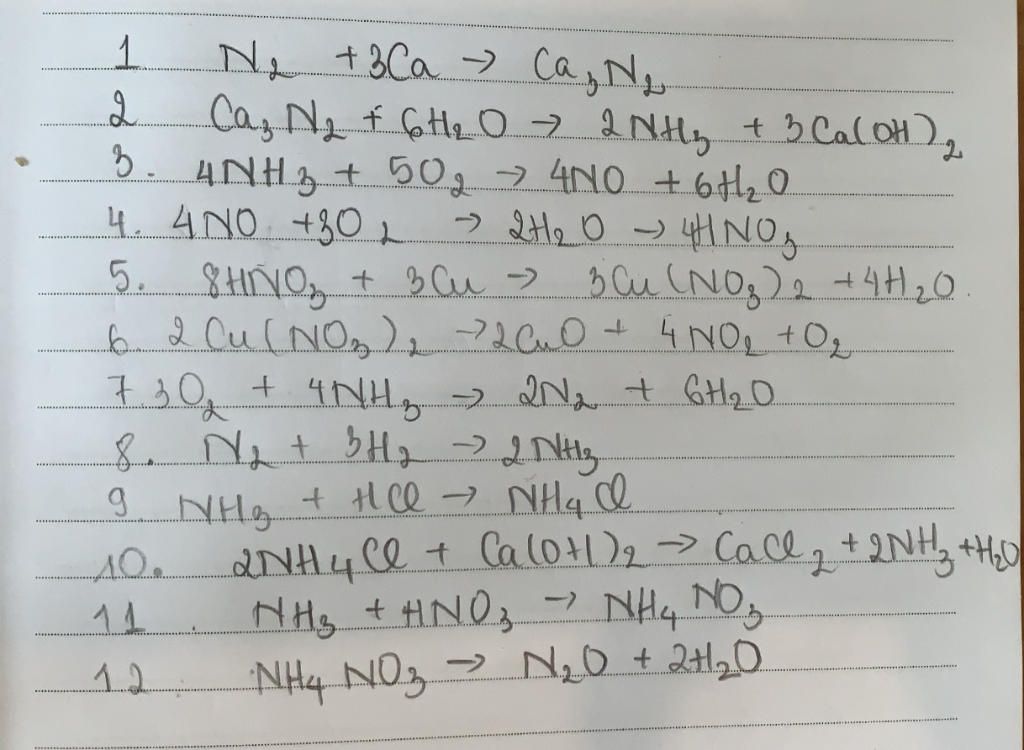 1 N₂ + 3Ca → Ca₃N₂
2 Ca₃N₂ + 6H₂O → 2NH₃ + 3Ca(OH)₂
3. 4NH₃ + 5O₂ → 4NO + 6H₂O
4. 4NO + 3O₂ → 2H₂O → 4HNO₃
5. 8HNO₃ + 3Cu → 3Cu(NO₃)₂ + 4H₂O.
6. 2Cu(NO₃)₂ → 2CuO + 4NO₂ + O₂
7. 3O₂ + 4NH₃ → 2N₂ + 6H₂O
8. N₂ + 3H₂ → 2NH₃
9 NH₃ + HCl → NH₄Cl
10. 2NH₄Cl + Ca(OH)₂ → CaCl₂ + 2NH₃ + H₂O
11. NH₃ + HNO₃ → NH₄NO₃
12 NH₄NO₃ → N₂O + 2H₂O